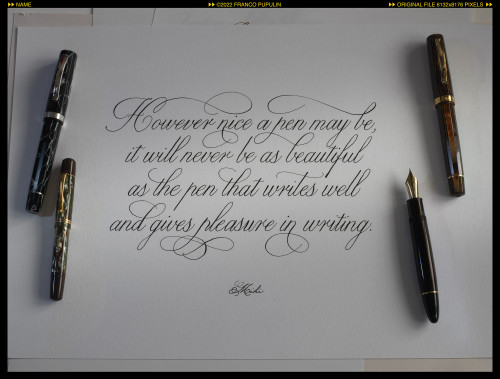 NAME
©2022 FRANCO PUPULIN
ORIGINAL FILE 6132x8176 PIXELS
However nice a pen may be,
it will never be as beautiful
as the pen that writes well
and gives pleasure in writing.